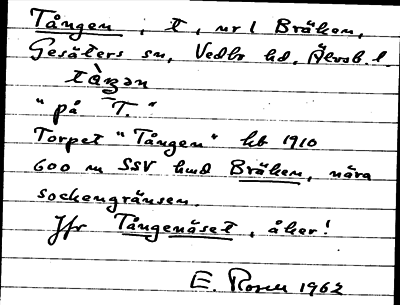 Tången, t, nr 1 Bräken,
Gesäters sn, Vedbo hd, Älvsb. l.
tàŋən
"på T."
Torpet "Tången" hb 1910
600 m SSV hmd Bräken, nära
sockengränsen.
Jfr Tångenäset, åker!
E. Rosell 1962